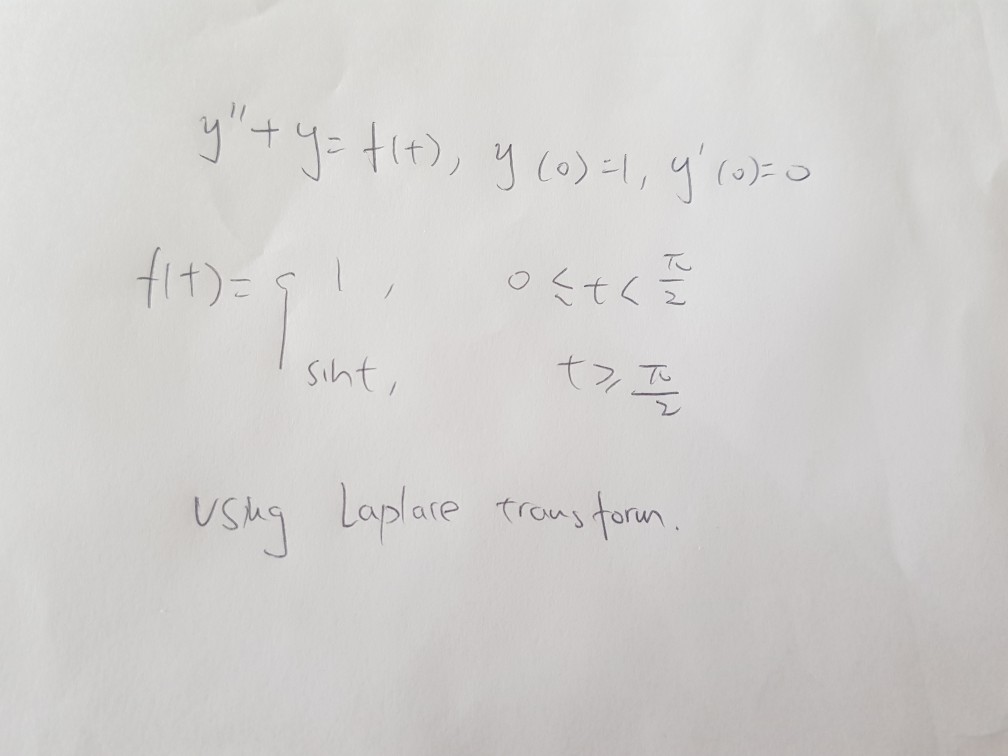 y''+y=f(t), y(0)=1, y'(0)=0
f(t)={ 1, 0≤t<π/2
sint, t≥π/2
Using Laplace transform.